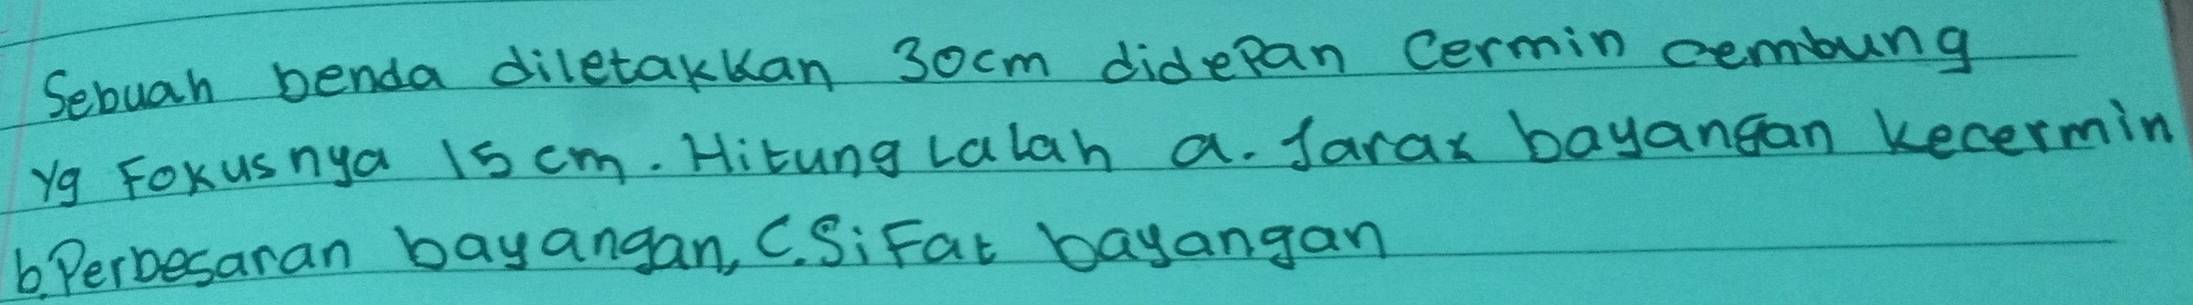 Sebuah benda diletakkan 30cm didepan Cermin cembung
Yg Fokusnya 15 cm. Hitunglalah a. Jarak bayangan kecermin
b. Perbesaran bayangan, C. Sifat bayangan